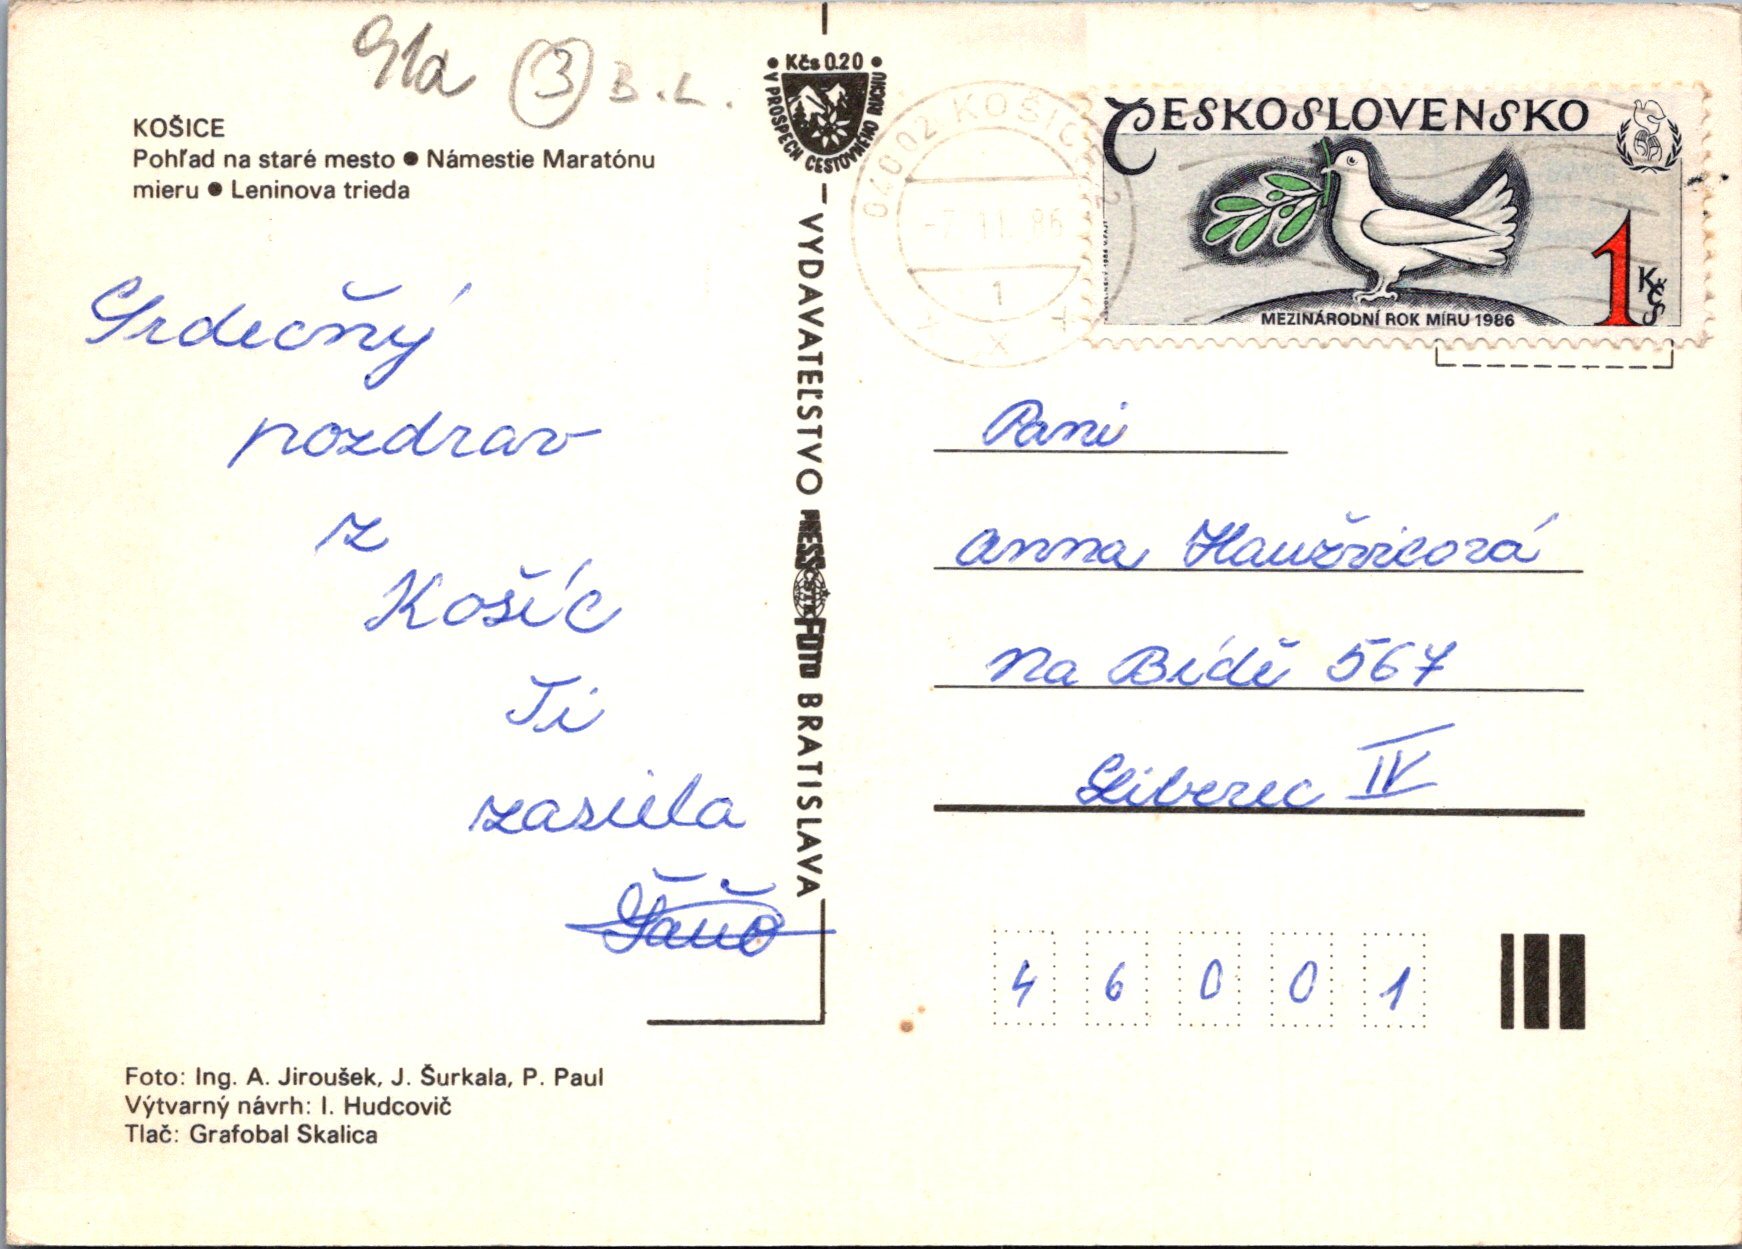 Gla ③ B.L.
KOŠICE
Pohľad na staré mesto ● Námestie Maratónu
mieru ● Leninova trieda
Srdečný
pozdrav
z
Košíc
Ti
zasiela
• Kčs 0.20 •
V PROSPECH CESTOVNÉHO RUCHU
VYDAVATEĽSTVO PRESSFOTO BRATISLAVA
ČSTK
04002 KOŠICE 2
-7.11.86
1
x
ČESKOSLOVENSKO
1 Kčs
MEZINÁRODNÍ ROK MÍRU 1986
Pani
Anna
Na Bídě 567
Liberec IV
46001
Foto: Ing. A. Jiroušek, J. Šurkala, P. Paul
Výtvarný návrh: I. Hudcovič
Tlač: Grafobal Skalica